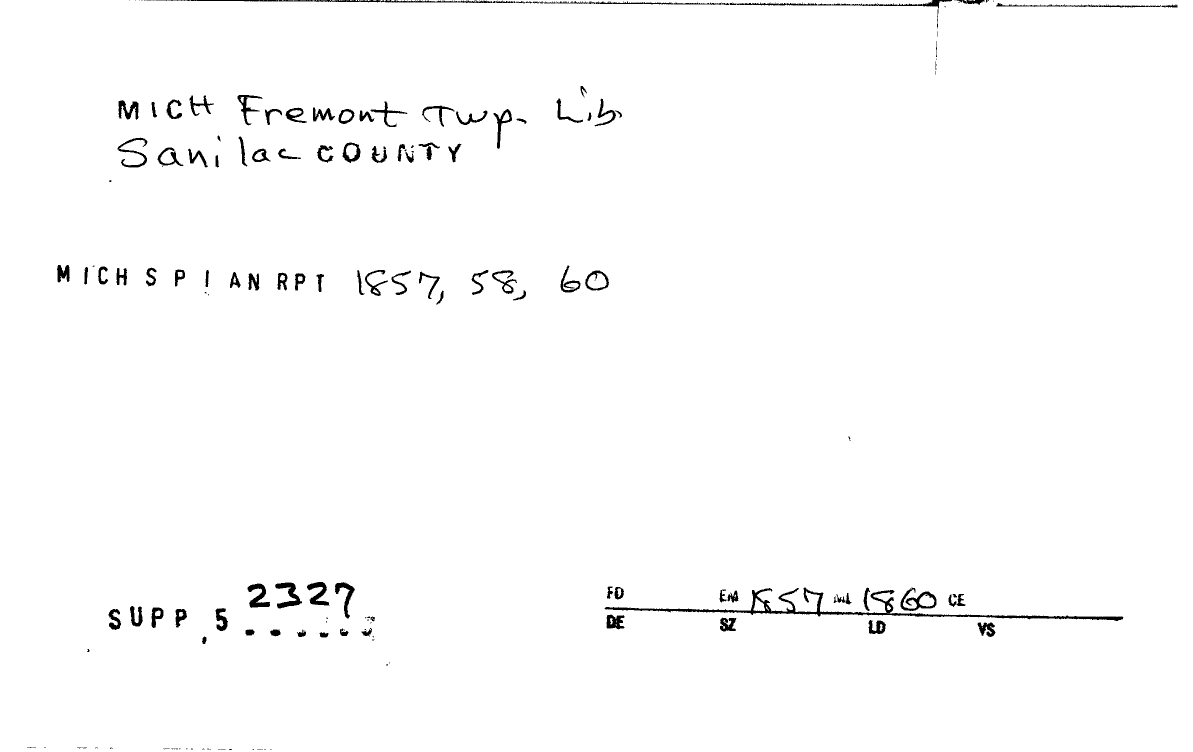 MICH Fremont Twp. Lib.
Sanilac COUNTY
MICH S P I AN RPT 1857, 58, 60
SUPP. 5 2327
FD 1857 1860 CE
DE SZ LD VS